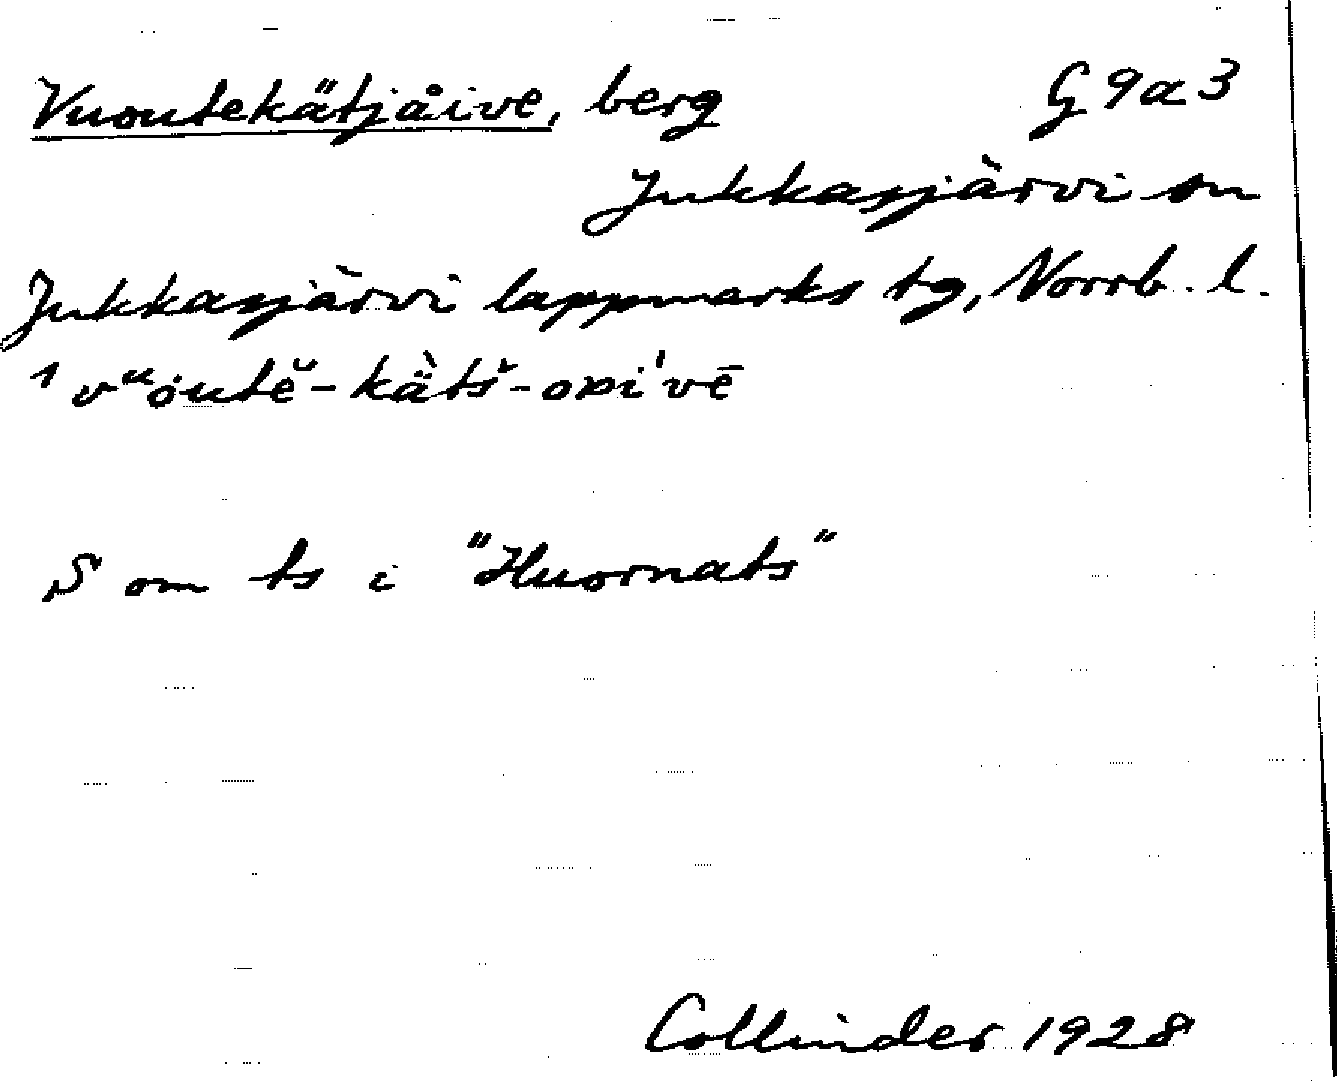 Vuoutekätjåive, berg G 9a3
Jukkasjärvi sn
Jukkasjärvi lappmarks tg, Norrb. l.
S om ts i "Huornats"
Collinder 1928